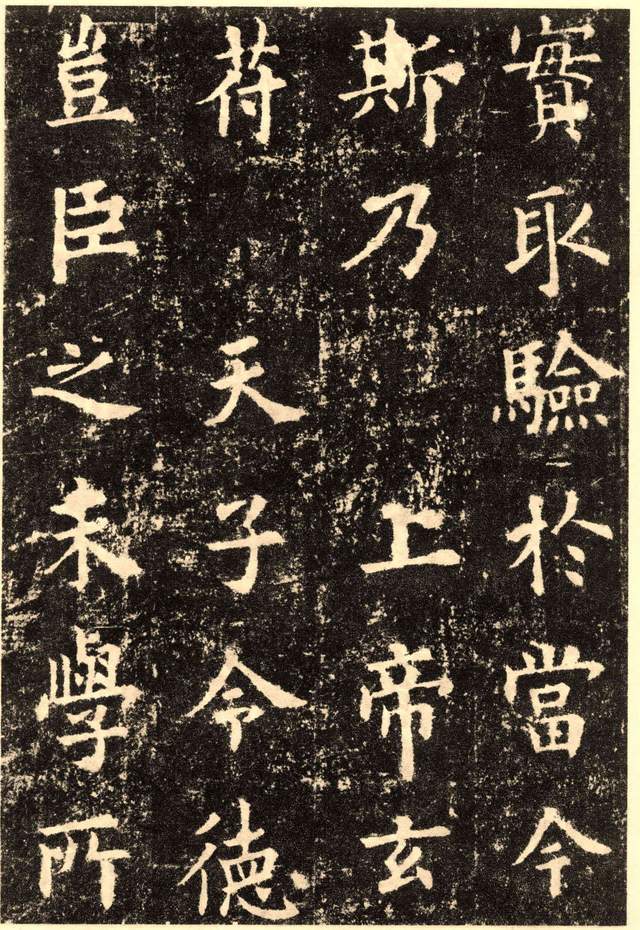 實取驗於當今
斯乃上帝玄
苻天子令徳
豈臣之末學所